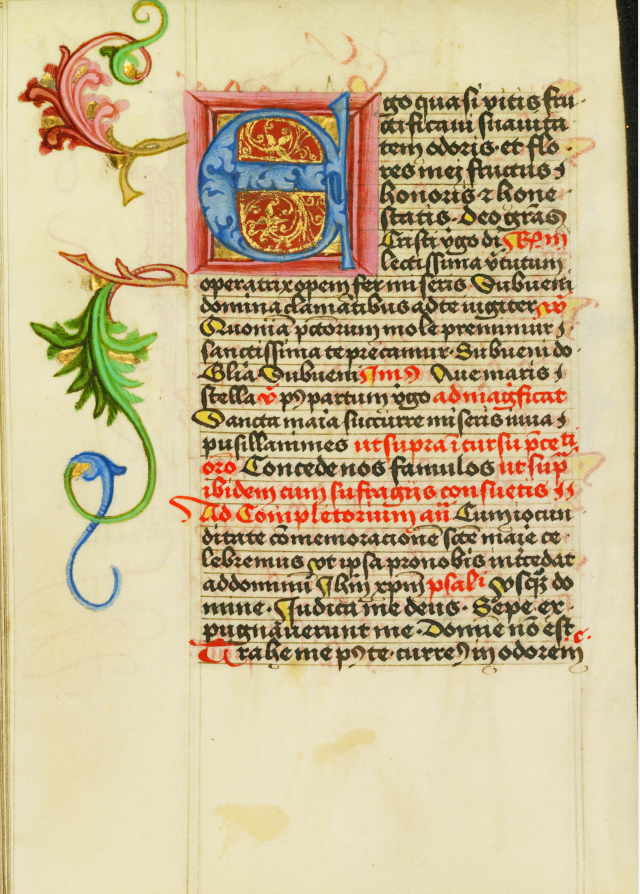 Ego quasi vitis fru
ctificaui suauita
tem odoris · et flo
res mei fructus ·
honoris ⁊ hone
statis · Deo grās
Cristi v̄go di
lectissima v̄tutum
operatrix opem fer miseris Subueni
domina clamātibus ad te iugiter v̄
Quoniā pctōrum mole premimur ·
sanctissima te precamur · Subueni do
Glīa Subueni ymꝰ Aue maris
stella v̄ pꝰ partum v̄go ad magficat
Sancta maīa succurre miseris iuua
pusillanimes ut supra ī cursu
orō Concede nos famulos ut sup̄
ibidem cum suffragijs consuetis
Ad Completorium an̄ Cum iocun
ditate cōmemoracionē scē marie ce
lebremus vt ipsa pro nobis int̄cedat
ad dominū Jhm̄ xpm̄ psalī vsq̄ꝫ do
mine · Judica me deus · Sepe ex
pugnauerunt me · Domīe nō est
Trahe me pꝰ te · curremꝰ in odorem